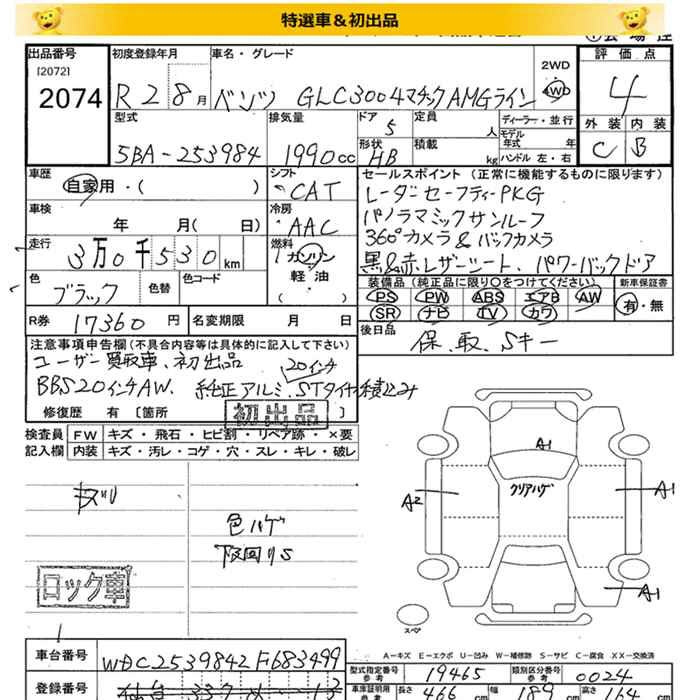 特選車＆初出品
出品番号 [2072] 2074
初度登録年月 R2 8月
車名・グレード ベンツ GLC300 4マチック AMGライン
2WD 4WD
評価点 4
外装 内装
C B
型式 5BA-253984
排気量 1990cc
ドア 5
形状 HB
定員 人
積載 kg
ディーラー・並行
モデル年式 年式
ハンドル 左・右
車歴 自家用・( )
シフト CAT
車検 年 月( 日)
冷房 AAC
走行 3万0千530km
燃料 ガソリン 軽・油 ( )
色 ブラック 色替 色コード
R券 17360円
名変期限 月 日
セールスポイント (正常に機能するものに限ります)
レーダーセーフティーPKG
パノラミックサンルーフ
360°カメラ&バックカメラ
黒&赤レザーシート、パワーバックドア
装備品(純正品に限り○をつけてください)
PS PW ABS エアB AW
SR ナビ TV カワ
新車保証書 有・無
後日品 保、取、Sキー
注意事項申告欄(不具合内容等は具体的に記入して下さい)
ユーザー買取車、初出品
BBS20インチAW、純正アルミ、STタイヤ積込み
20インチ
修復歴 有 [箇所 ]
初出品
検査員記入欄
FW キズ・飛石・ヒビ割・リペア跡・×要
内装 キズ・汚レ・コゲ・穴・スレ・キレ・破レ
色ハゲ
下回りS
ロック車
A1
クリアハゲ
A2
A1
A1
スペア
A-キズ E-エクボ U-凹み W-補修跡 S-サビ C-腐食 XX-交換済
車台番号 WDC2539842F683499
型式指定番号 参考 19465
類別区分番号 参考 0024
登録番号
車庫証明用 参考
長さ 466 cm
幅 189 cm
高さ 164 cm